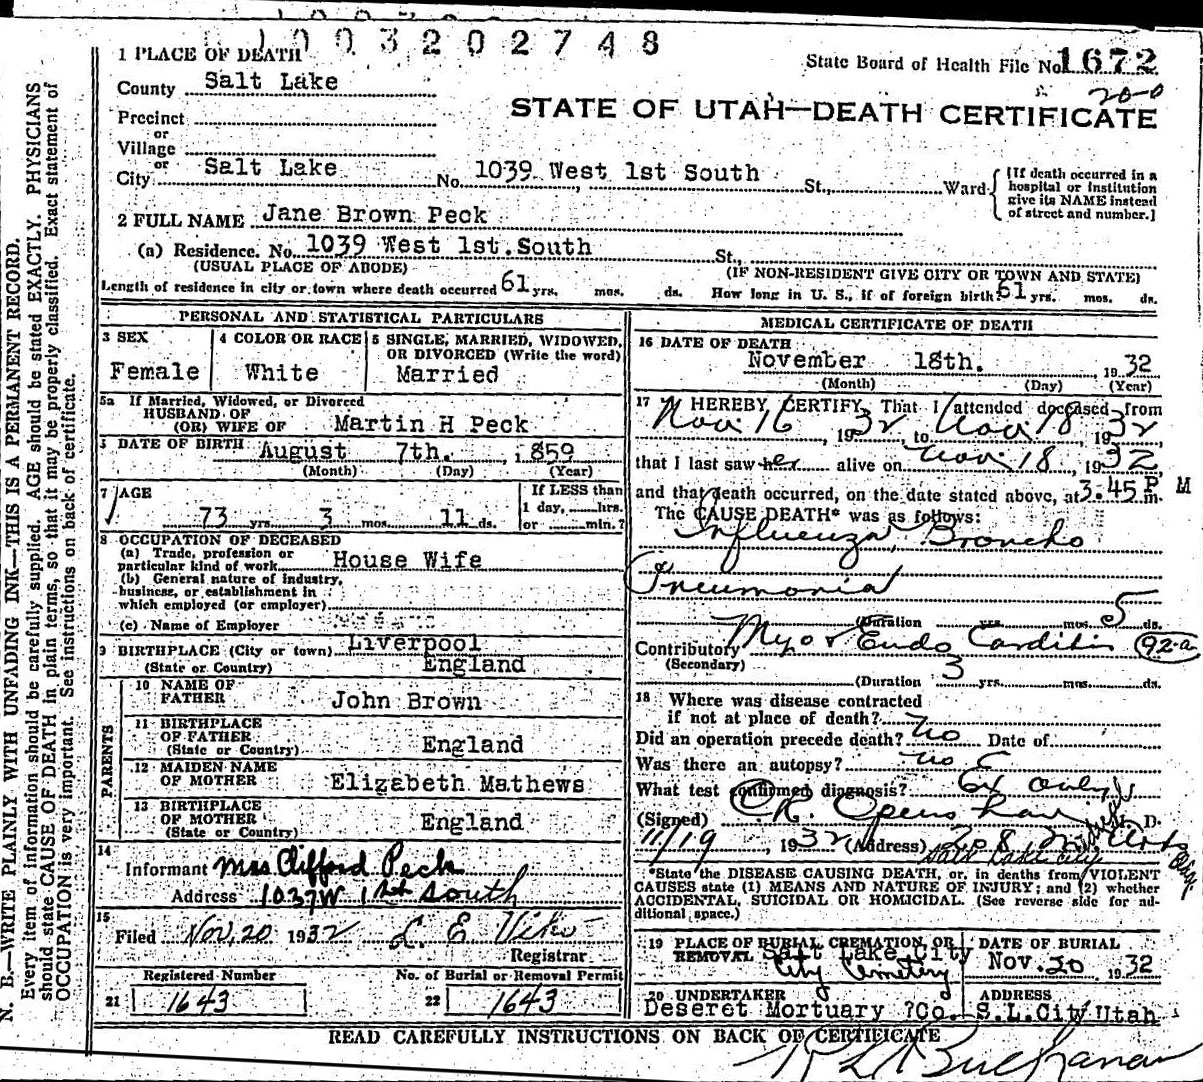 1003202748
1 PLACE OF DEATH
State Board of Health File No. 1672
County Salt Lake
20-0
STATE OF UTAH—DEATH CERTIFICATE
Precinct
or
Village
or
City Salt Lake No. 1039 West 1st South St., Ward
[If death occurred in a
hospital or institution
give its NAME instead
of street and number.]
2 FULL NAME Jane Brown Peck
(a) Residence. No. 1039 West 1st. South St.,
(USUAL PLACE OF ABODE) (IF NON-RESIDENT GIVE CITY OR TOWN AND STATE)
Length of residence in city or town where death occurred 61 yrs. mos. ds. How long in U. S., if of foreign birth 61 yrs. mos. ds.
PERSONAL AND STATISTICAL PARTICULARS
3 SEX
Female
4 COLOR OR RACE
White
5 SINGLE, MARRIED, WIDOWED,
OR DIVORCED (Write the word)
Married
5a If Married, Widowed, or Divorced
HUSBAND OF
(OR) WIFE OF Martin H Peck
DATE OF BIRTH August 7th. , 1859
(Month) (Day) (Year)
7 AGE
73 yrs 3 mos. 11 ds.
If LESS than
1 day, hrs.
or min.?
8 OCCUPATION OF DECEASED
(a) Trade, profession or
particular kind of work House Wife
(b) General nature of industry,
business, or establishment in
which employed (or employer)
(c) Name of Employer
9 BIRTHPLACE (City or town) Liverpool
(State or Country) England
PARENTS
10 NAME OF
FATHER John Brown
11 BIRTHPLACE
OF FATHER
(State or Country) England
12 MAIDEN NAME
OF MOTHER Elizabeth Mathews
13 BIRTHPLACE
OF MOTHER
(State or Country) England
14
Informant Mrs Clifford Peck
Address 1037 W 1st South
15
Filed Nov, 20 1932 L. E. Viko
Registrar
Registered Number
21 1643
No. of Burial or Removal Permit
22 1643
MEDICAL CERTIFICATE OF DEATH
16 DATE OF DEATH
November 18th. , 1932
(Month) (Day) (Year)
17 I HEREBY CERTIFY, That I attended deceased from
Nov. 16 , 1932 to Nov 18 , 1932
that I last saw her alive on Nov. 18 , 1932,
and that death occurred, on the date stated above, at 3.45 P m. M
The CAUSE DEATH* was as follows:
Influenza, Broncho
Pneumonia
(Duration yrs. mos. 5 ds.
Contributory Myo & Endo Carditis 92-a
(Secondary)
(Duration 3 yrs. mos. ds.
18 Where was disease contracted
if not at place of death?
Did an operation precede death? no Date of
Was there an autopsy? no
What test confirmed diagnosis? Ex only
(Signed) C. R. Openshaw M. D.
11/19 , 1932 (Address) 208
Salt Lake City
*State the DISEASE CAUSING DEATH, or, in deaths from VIOLENT
CAUSES state (1) MEANS AND NATURE OF INJURY; and (2) whether
ACCIDENTAL, SUICIDAL OR HOMICIDAL. (See reverse side for ad-
ditional space.)
19 PLACE OF BURIAL, CREMATION, OR
REMOVAL Salt Lake City
City Cemetery
DATE OF BURIAL
Nov. 20 1932
20 UNDERTAKER
Deseret Mortuary ?Co.
ADDRESS
S.L.City Utah
READ CAREFULLY INSTRUCTIONS ON BACK OF CERTIFICATE
R L A Buchanan
N. B.—WRITE PLAINLY WITH UNFADING INK—THIS IS A PERMANENT RECORD.
Every item of information should be carefully supplied. AGE should be stated EXACTLY. PHYSICIANS
should state CAUSE OF DEATH in plain terms, so that it may be properly classified. Exact statement of
OCCUPATION is very important. See instructions on back of certificate.